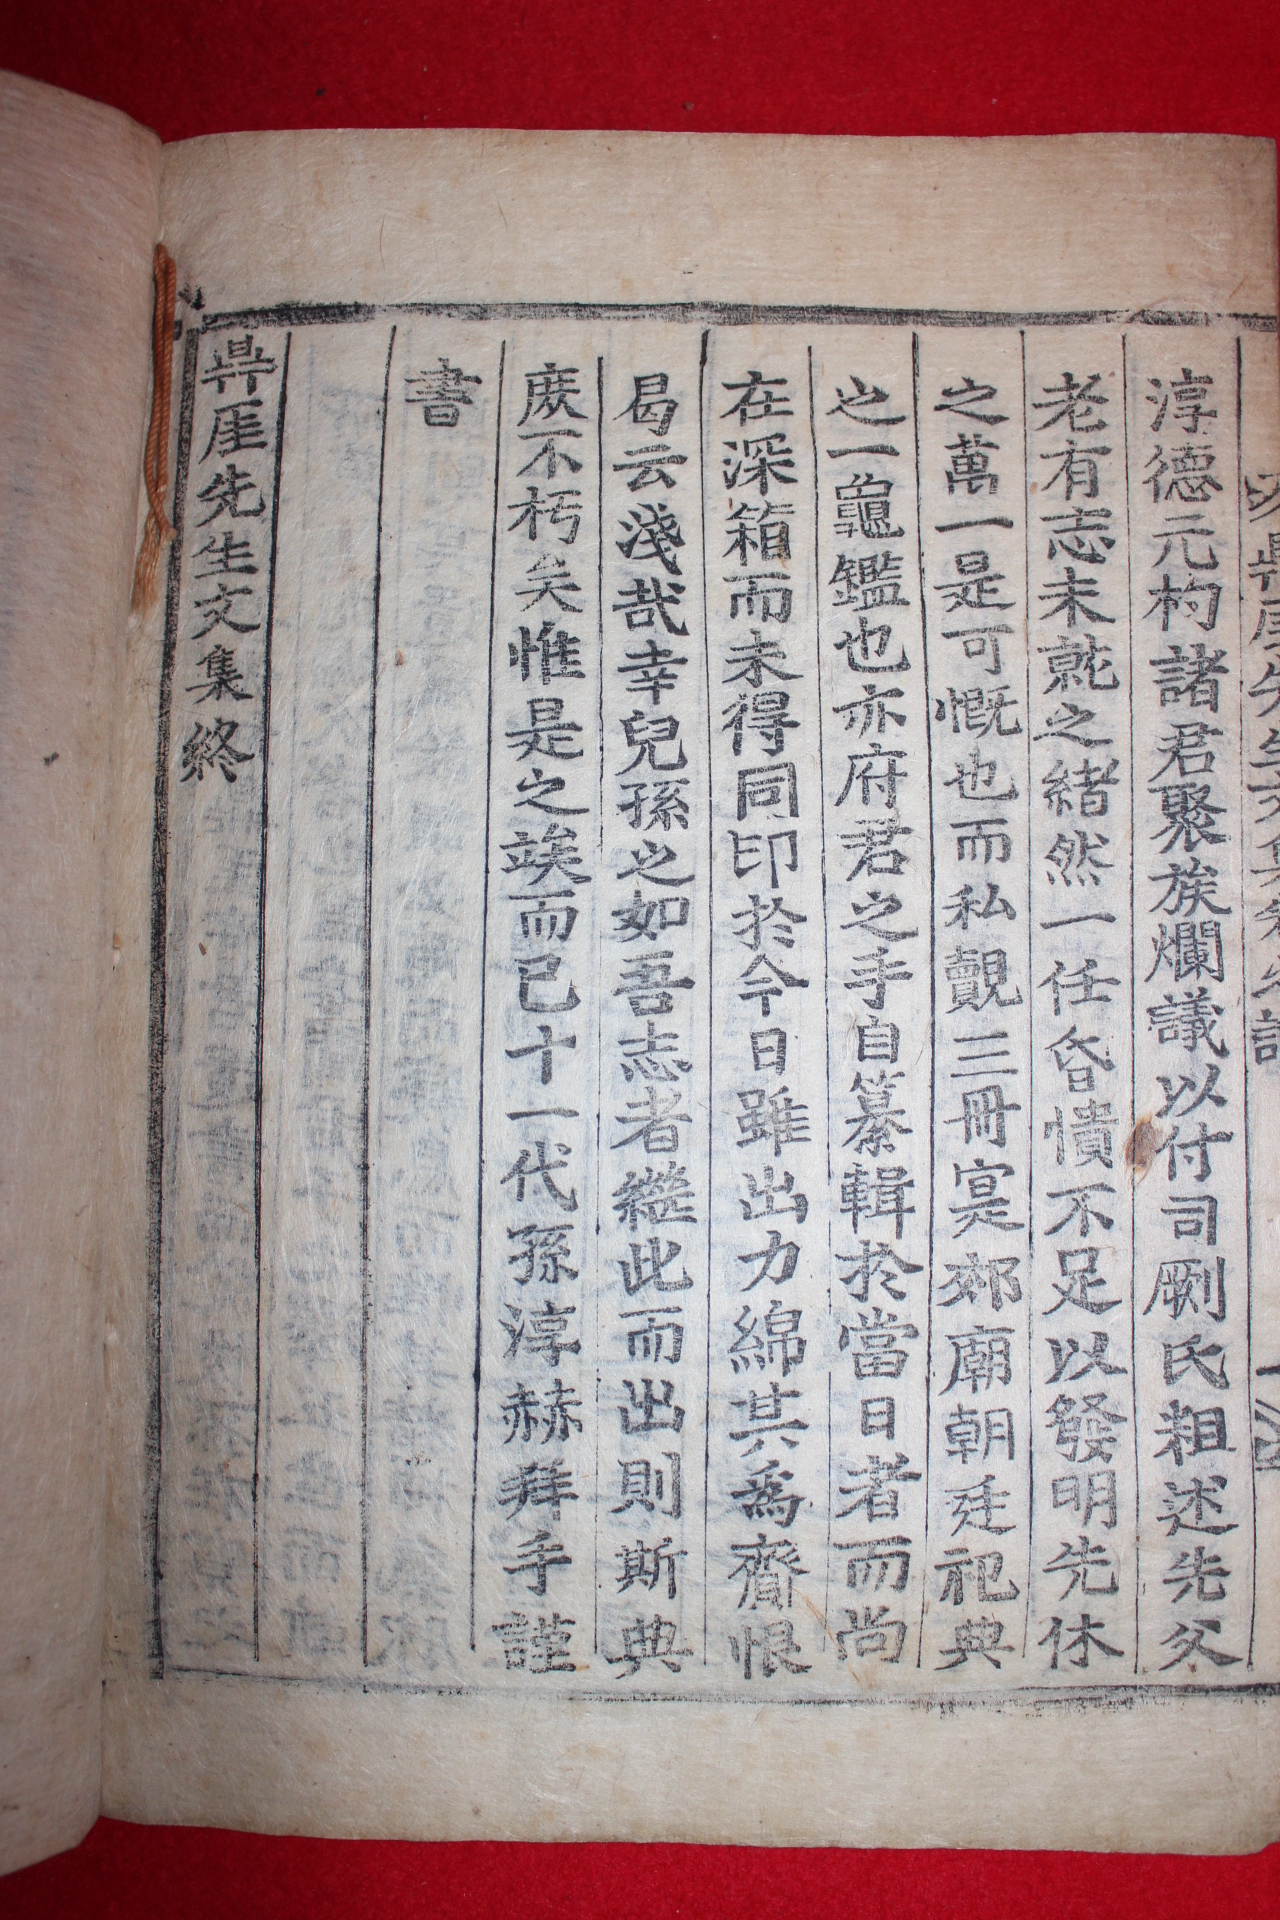 淳德元杓諸君聚族爛議以付司剞氏粗述先父
老有志未就之緖然一任昏憒不足以發明先休
之萬一是可慨也而私覿三冊寔郊廟朝廷祀典
之一龜鑑也亦府君之手自纂輯於當日者而尙
在深箱而未得同印於今日雖出力綿其爲齎恨
曷云淺哉幸兒孫之如吾志者繼此而出則斯典
庶不朽矣惟是之竢而已十一代孫淳赫拜手謹
書
鼎厓先生文集終